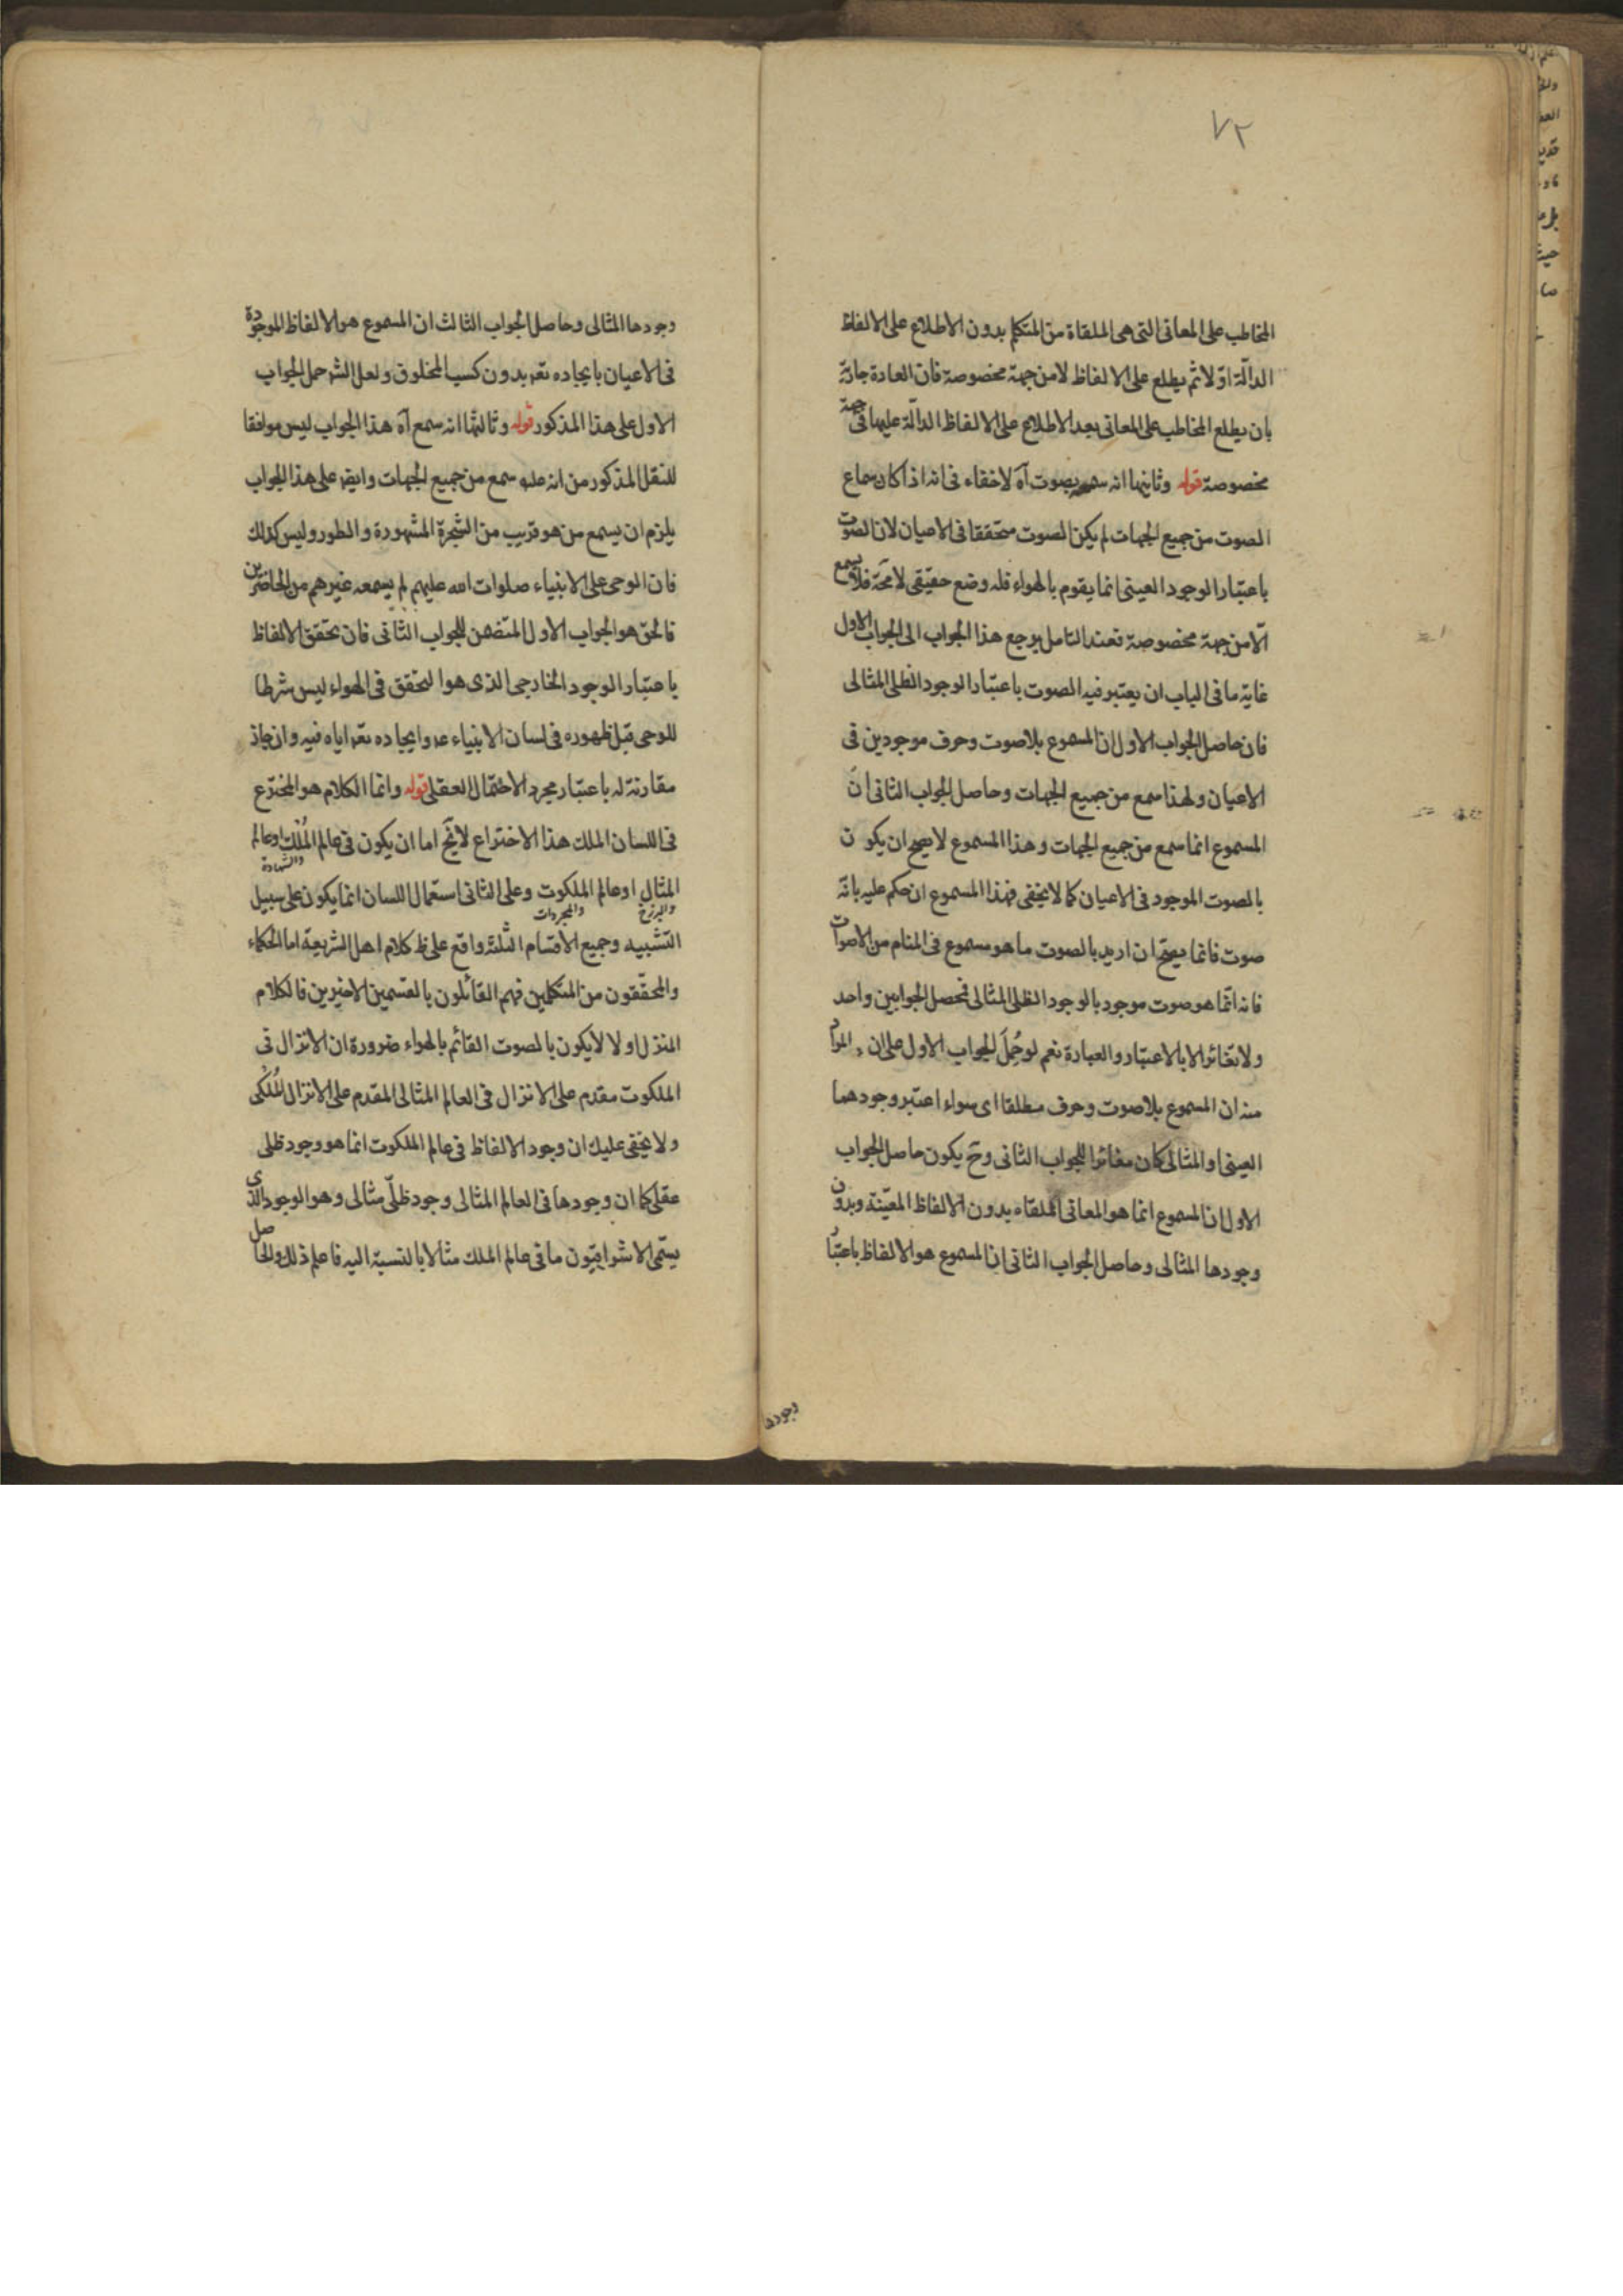 ٧٢
المخاطب على المعانى التى هى الملقاة من المتكلم بدون الاطلاع على الالفاظ
الدالّة اوّلا ثم يطلع على الالفاظ لا من جهة مخصوصة فان العادة جارية
بان يطلع المخاطب على المعانى بعد الاطلاع على الالفاظ الدالّة عليها فى جهة
مخصوصة قوله وثانيها انه سمعه بصوت آه لا خفاء فى انه اذا كان سماع
الصوت من جميع الجهات لم يكن الصوت متحققا فى الاعيان لان الصوت
باعتبار الوجود العينى انما يقوم بالهواء فله وضع حقيقى لا محّة فلا يسمع
الّا من جهة مخصوصة فعند التامل يرجع هذا الجواب الى الجواب الاول
غاية ما فى الباب ان يعتبر فيه الصوت باعتبار الوجود الظلى المثالى
فان حاصل الجواب الاول ان المسموع بلا صوت وحرف موجودين فى
الاعيان ولهذا سمع من جميع الجهات وحاصل الجواب الثانى انّ
المسموع انما سمع من جميع الجهات وهذا المسموع لا يصح ان يكون
بالصوت الموجود فى الاعيان كما لا يخفى فهذا المسموع ان حكم عليه بانّه
صوت فانما يصحّ ان اريد بالصوت ما هو مسموع فى المنام من الاصوات
فانه انّما هو صوت موجود بالوجود الظلى المثالى فحصل الجوابين واحد
ولا تغائر الا بالاعتبار والعبارة نعم لو حُمِلَ الجواب الاول على ان المراد
منه ان المسموع بلا صوت وحرف مطلقا اى سواء اعتبر وجودهما
العينى او المثالى كان مغائرا للجواب الثانى وحّ يكون حاصل الجواب
الاول ان المسموع انما هو المعانى الملقاه بدون الالفاظ المعيّنة وبدون
وجودها المثالى وحاصل الجواب الثانى ان المسموع هو الالفاظ باعتبار
وجودها
وجودها المثالى وحاصل الجواب الثالث ان المسموع هو الالفاظ الموجودة
فى الاعيان بايجاده تعه بدون كسب المخلوق ولعل الشه حمل الجواب
الاول على هذا المذكور قوله وثالثها انه سمع آه هذا الجواب ليس موافقا
للنقل المذكور من انه علىه سمع من جميع الجهات وايضه على هذا الجواب
يلزم ان يسمع من هو قريب من الشجرة المشهورة والطور وليس كذلك
فان الوحى على الانبياء صلوات الله عليهم لم يسمعه غيرهم من الحاضرين
فالحق هو الجواب الاول المتضمن للجواب الثانى فان تحقق الالفاظ
باعتبار الوجود الخارجى الذى هو التحقق فى الهواء ليس شرطا
للوحى قبل ظهوره فى لسان الانبياء عه وايجاده تعه اياه فيه وان جاز
مقارنة له باعتبار مجرد الاحتمال العقلى قوله وانما الكلام هو المخترع
فى اللسان الملك هذا الاختراع لا يخّ اما ان يكون فى عالم المُلْك او عالم
والشهادة
المثال او عالم الملكوت وعلى الثانى استعمال اللسان انما يكون على سبيل
والبرزخ والمجردات
التشبيه وجميع الاقسام الثلثة واقع على ظ كلام اهل الشريعة اما الحكماء
والمحققون من المتكلمين فهم القائلون بالقسمين الاخيرين فالكلام
المنزل اولا لا يكون بالصوت القائم بالهواء ضرورة ان الانزال فى
الملكوت مقدم على الانزال فى العالم المثالى المقدم على الانزال المُلْكى
ولا يخفى عليك ان وجود الالفاظ فى عالم الملكوت انما هو وجود ظلى
عقلى كما ان وجودها فى العالم المثالى وجود ظلّى مثالى وهو الوجود الذى
يسمّى الاشراقيّون ما فى عالم الملك مثالا بالنسبة اليه فاعلم ذلك والحاصل